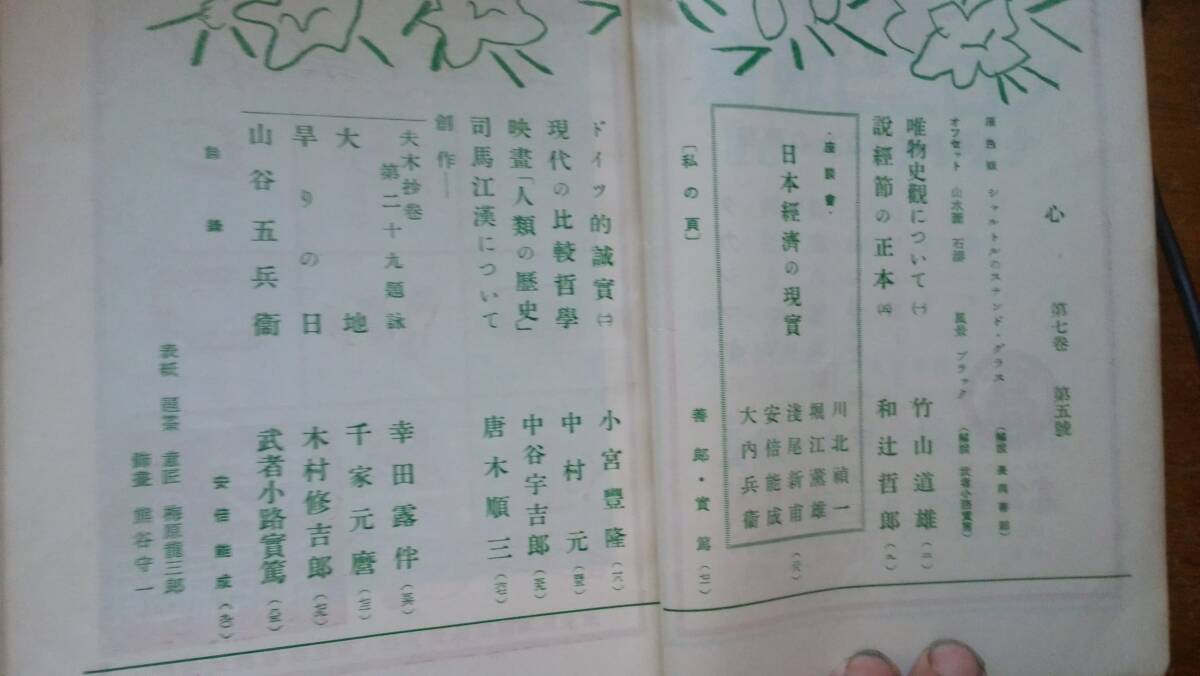 心 第七卷 第五號
原色版 シャルトルのステンド・グラス (解說 長與善郎)
オフセット 山水圖 石濤 風景 ブラック (解說 武者小路實篤)
唯物史觀について(一) 竹山道雄
說經節の正本(四) 和辻哲郎
・座談會・
日本經濟の現實
川北禎一
堀江薰雄
淺尾新甫
安倍能成
大內兵衞
〔私の頁〕 善郎・實篤
ドイツ的誠實(二) 小宮豐隆
現代の比較哲學 中村元
映畫「人類の歷史」 中谷宇吉郎
司馬江漢について 唐木順三
創作——
夫木抄卷第二十九題詠 幸田露伴
大地 千家元麿
旱りの日 木村修吉郎
山谷五兵衞 武者小路實篤
安倍能成
表紙 題簽 意匠 梅原龍三郎
熊谷守一